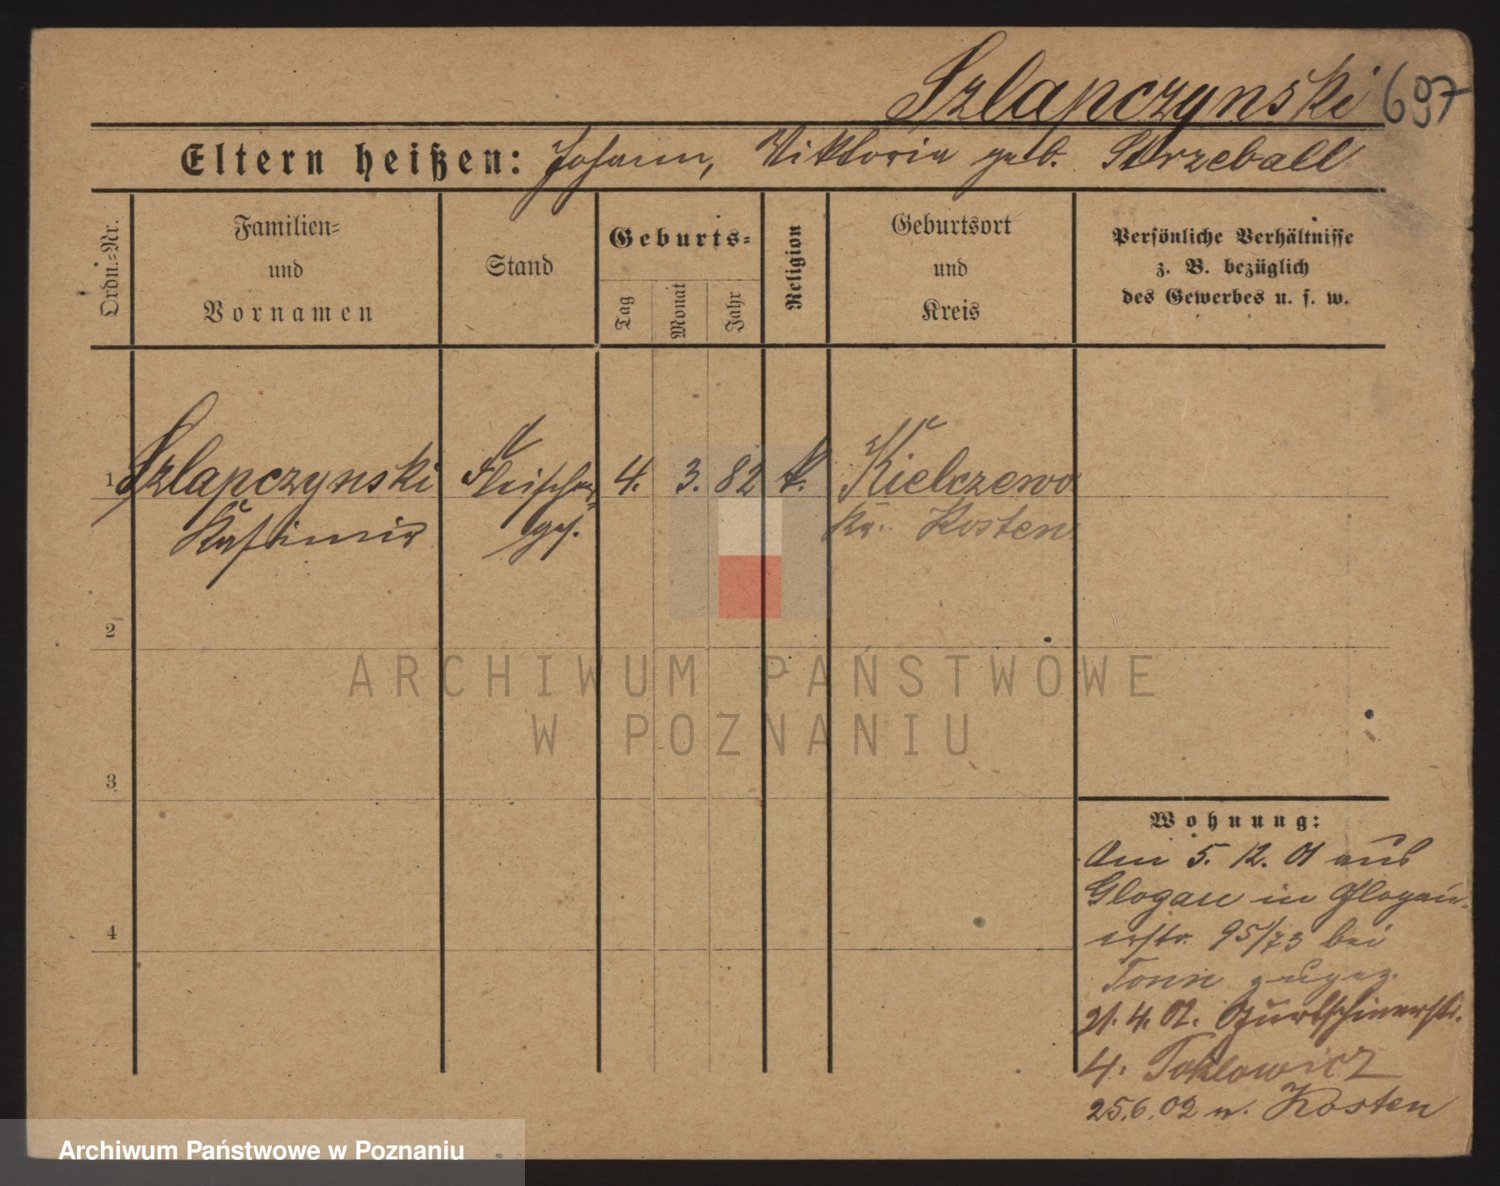 Szlapczynski 697
Eltern heißen: Johann, Viktoria geb. Skrzeball
Ordn.=Nr.
Familien=
und
Vornamen
Stand
Geburts=
Tag
Monat
Jahr
Religion
Geburtsort
und
Kreis
Persönliche Verhältnisse
z. B. bezüglich
des Gewerbes u. s. w.
1 Szlapczynski Fleischer= 4. 3. 82 k. Kielczewo
Kasimir ges. Kr. Kosten
2
ARCHIWUM PAŃSTWOWE
W POZNANIU
3
Wohnung:
Am 5. 12. 01 aus
Glogau in Glogau=
erstr. 95/73 bei
Tonn zugez.
21. 4. 02. Gurtschinerstr.
4.
25.6.02 n. Kosten
4
Archiwum Państwowe w Poznaniu